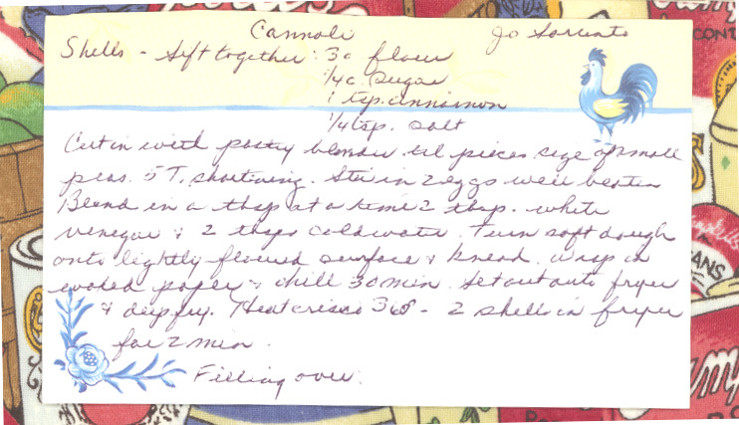 Cannoli Jo Sorrento
Shells - Sift together: 3 c flour
1/4 c. Sugar
1 tsp. cinnamon
1/4 tsp. salt
Cut in with pastry blender til pieces size of small
peas. 5 T. shortening. Stir in 2 eggs well beaten
Blend in a tbsp at a time 2 tbsp. white
vinegar & 2 tbsps cold water. Turn soft dough
onto lightly floured surface & knead. Wrap in
waxed paper & chill 30 min. Set out auto fryer
& deep fry. Heat crisco 360 - 2 shells in fryer
for 2 min.
Filling over.
CONT
ANS